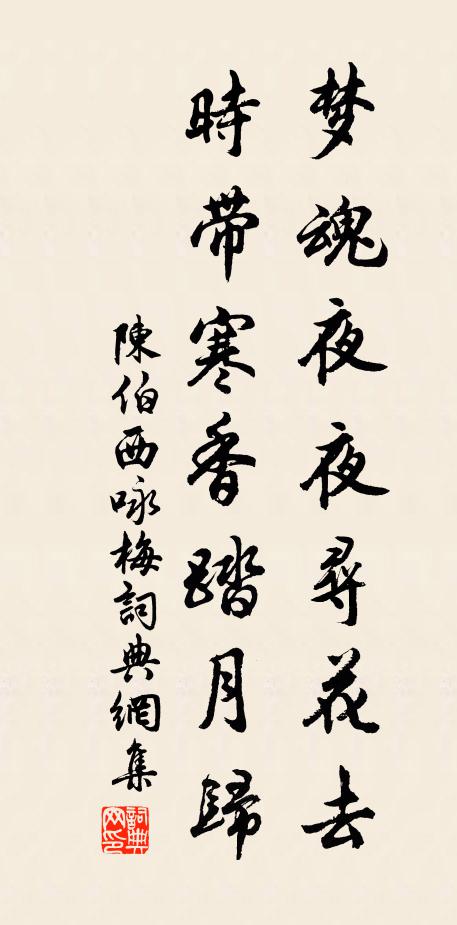 梦魂夜夜尋花去
時帶寒香踏月歸
陳伯西咏梅詞典網集
詞典網印